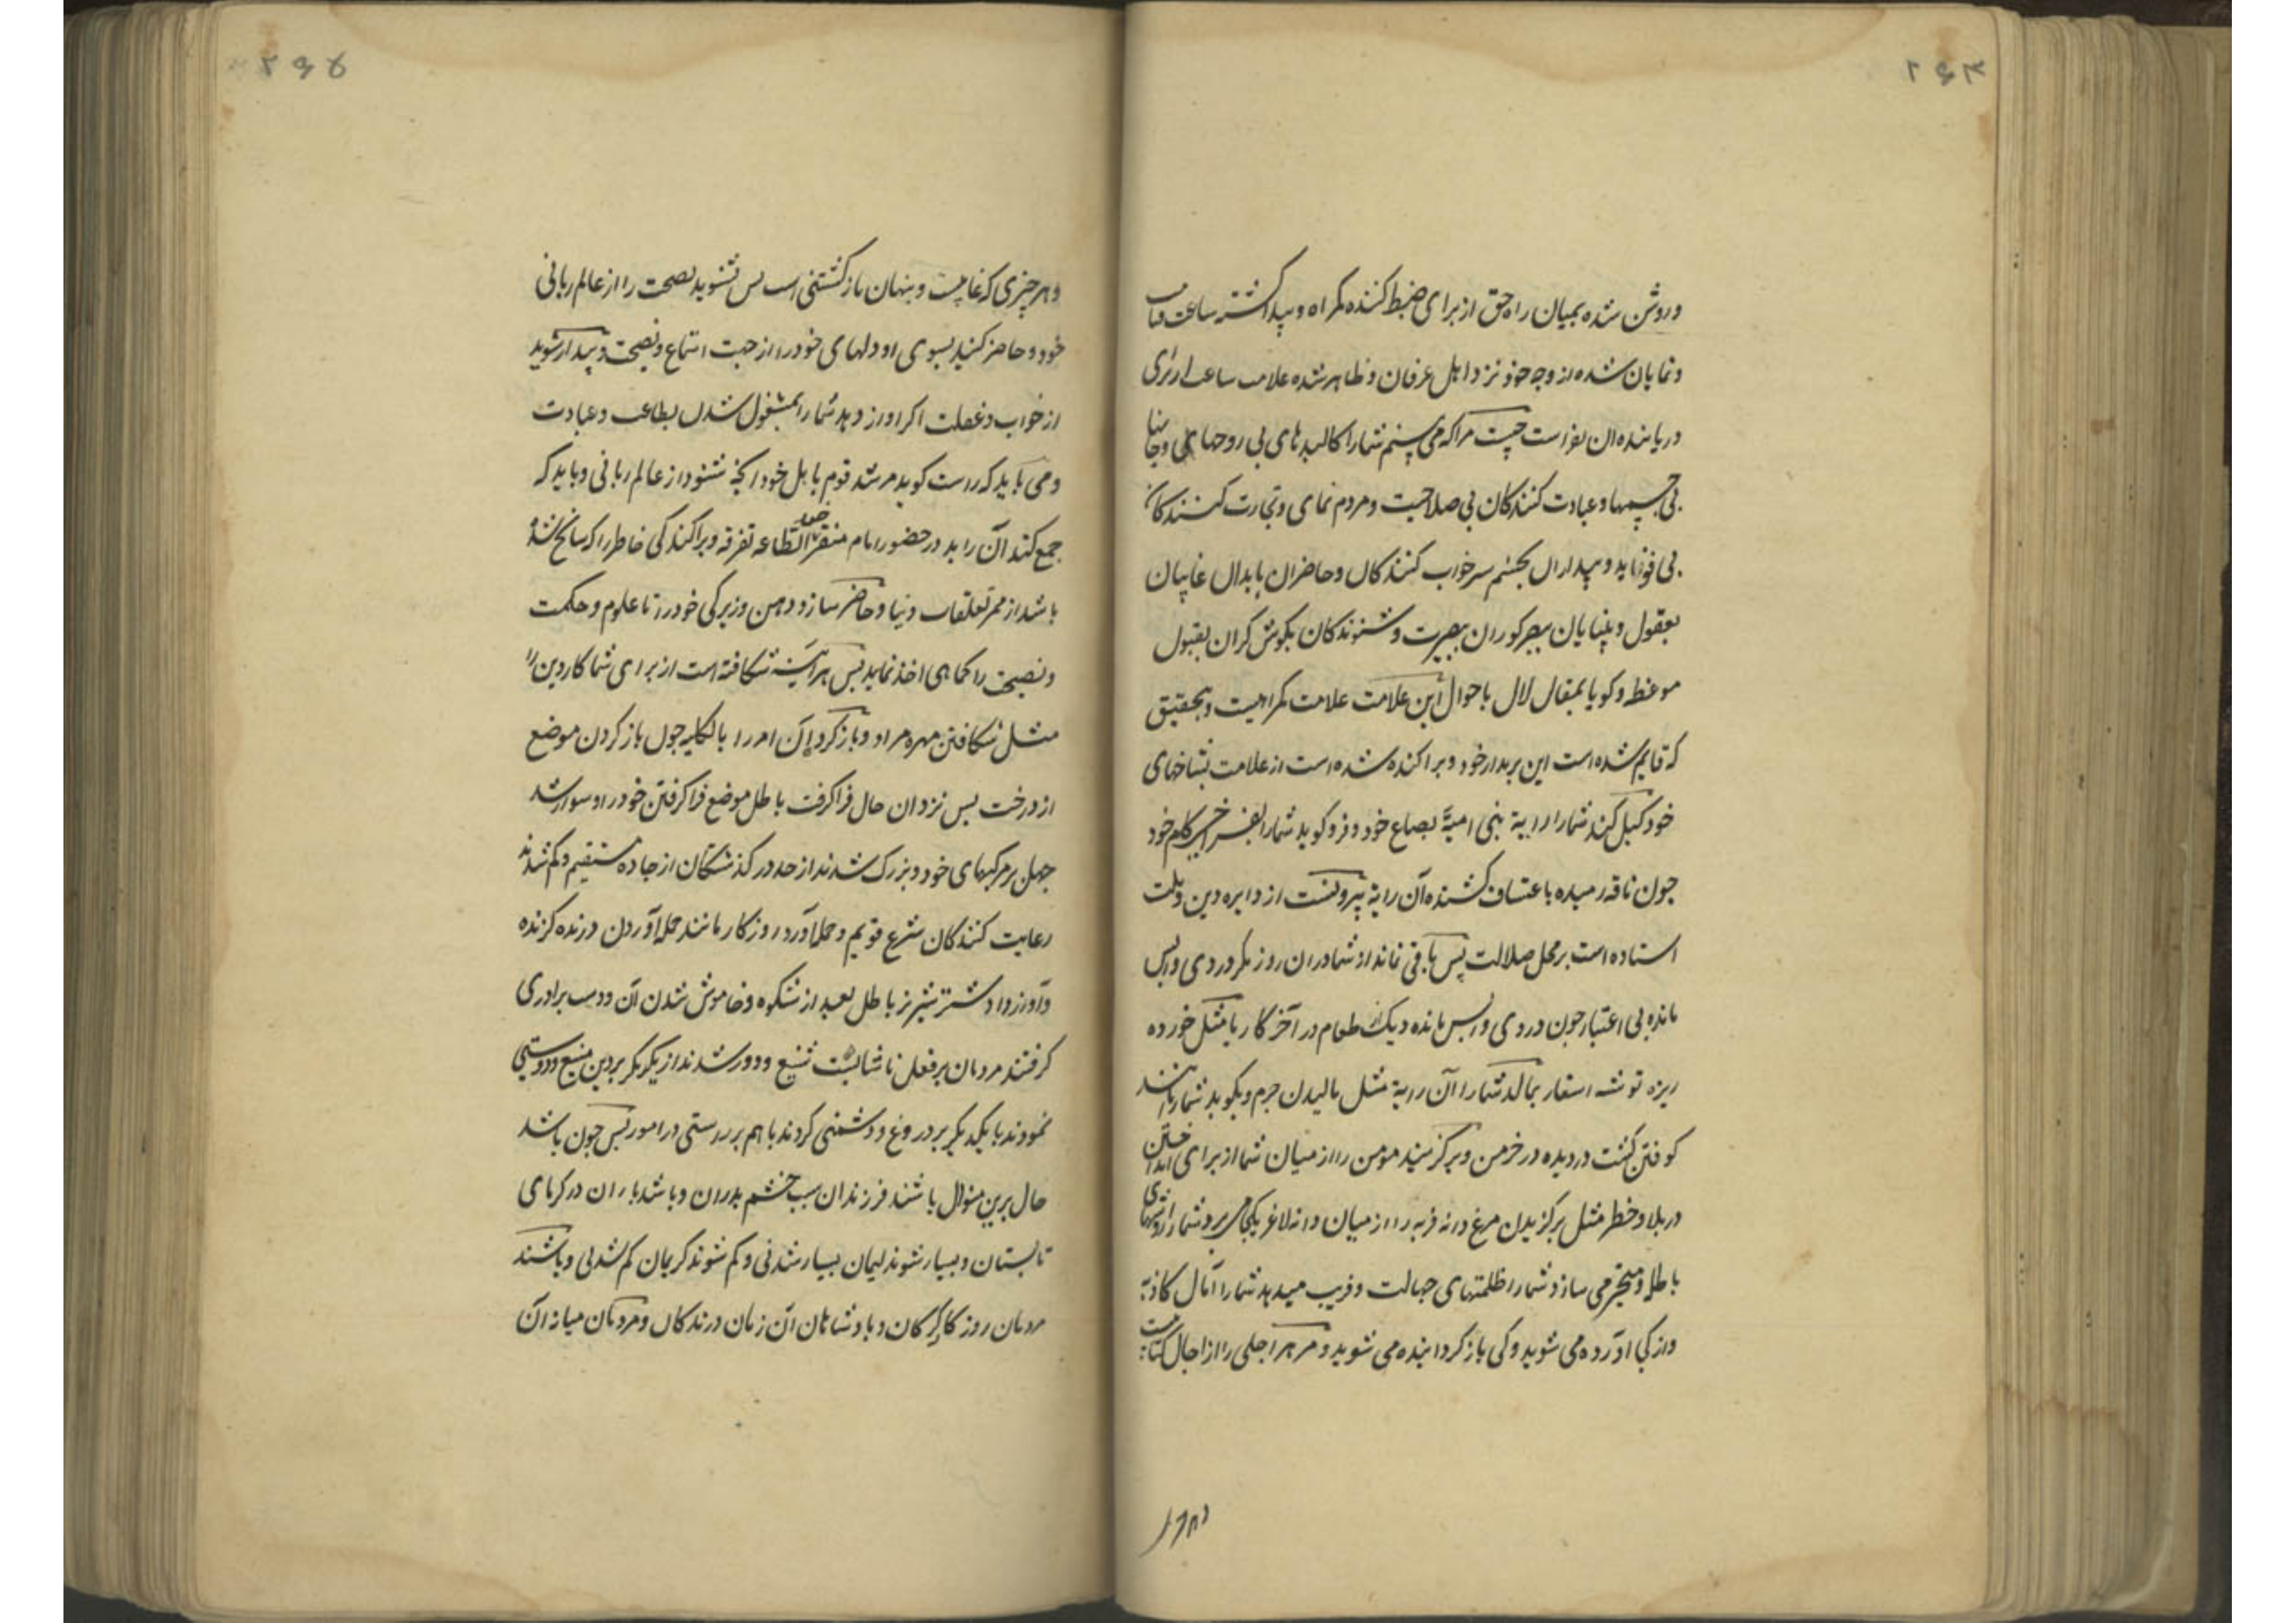 ۲۶۴
وروشن شده بمیان راه حق از برای ضبط کننده مکراه و پیدا کشته ساعت قیامت
ونمایان شده از وجه خود نزد اهل عرفان و ظاهر شده علامت ساعت از برای
دریابنده ان بفراست چیست مرا که می بینم شما را کالبدهای بی روحها و جانها
بی جسمها و عبادت کنندکان بی صلاحیت و مردم نمای و تجارت کنندکان
بی فوز فایده و بیداران بچشم سر خواب کنندکان و حاضران بابدان غایبان
بعقول و بینایان ببصر کوران ببصیرت و شنوندکان بکوش کران بقبول
موعظه و کویا بمقال لال باحوال این علامت علامت کمراهیست و بتحقیق
که قایم شده است این بر مدار خود و پراکنده شده است از علامت بشاخهای
خود کیل کند شما را رایة بنی امیة بصاع خود و فرو کوبد شما را کام خود
چون ناقه رمیده باعتساف کشنده آن رایة بیرونست از دایره دین و ملت
استاده است بر محل ضلالت پس باقی نماند از شما در ان روز مکر دردی واپس
مانده بی اعتبار چون دردی واپس مانده دیک طعام در آخر کار یا مثل خورده
ریزه توشه اسفار بمالد شما را آن رایة مثل مالیدن چرم و بکوبد شما را مانند
کوفتن کشت درویده در خرمن و برکزیند مومن را از میان شما از برای انداختن
در بلا و خطر مثل برکزیدن مرغ دانه فربه را از میان دانه لاغر بکجا می برد شما را روشهای
باطل و متحیر می سازد شما را ظلمتهای جهالت و فریب میدهد شما را آمال کاذبه
واز کجا آورده می شوید و کی باز کردانیده می شوید و مر هر اجلی را از اجال کتابیست
وهر
۲۶۵
وهر چیزی که غایبست و پنهان باز کشتنی است پس بشنوید نصیحت را از عالم ربانی
خود و حاضر کنید بسوی او دلهای خود را از جهت استماع و نصیحت و بیدار شوید
از خواب و غفلت اکر اواز دهد شما را بمشغول شدن بطاعت و عبادت
ومی باید که راست کوید مرشد قوم با اهل خود انچه شنود از عالم ربانی و باید که
جمع کند آن را بد در حضور امام متفرقات خود تفرقه و پراکندکی خاطر را که سانح شده
باشد از ممر تعلقات دنیا و حاضر سازد ذهن و زیرکی خود را تا علوم و حکمت
ونصیحت را کماهی اخذ نماید پس هر اینه شکافته است از برای شما کار دین را
مثل شکافتن مهره مر او را و باز کرد آن امر را بالکلیه چون باز کردن موضع
از درخت پس نزد ان حال فرا کرفت باطل موضع فرا کرفتن خود را و سوار شد
جهل بر مرکبهای خود و بزرک شدند از حد در کذشتکان از جاده مستقیم و کم شدند
رعایت کنندکان شرع قویم و حمله آورد روزکار مانند حمله آوردن درنده کزنده
وآواز داد شتر نر باطل بعد از شکوه و خاموش شدن آن و دست برادری
کرفتند مردمان بر فعل ناشایسته شنیع و دور شدند از یکدیکر بر دین منیع و دوستی
نمودند با یکدیکر بر دروغ و دشمنی کردند با هم بر راستی در امور پس چون باشد
حال برین منوال باشند فرزندان سبب خشم پدران و باشد باران در کرمای
تابستان و بسیار شوند لئیمان بسیار شدنی و کم شوند کریمان کم شدنی و باشند
مردمان روزکار کرکان و بادشاهان آن زمان درندکان و مردمان میانه آن